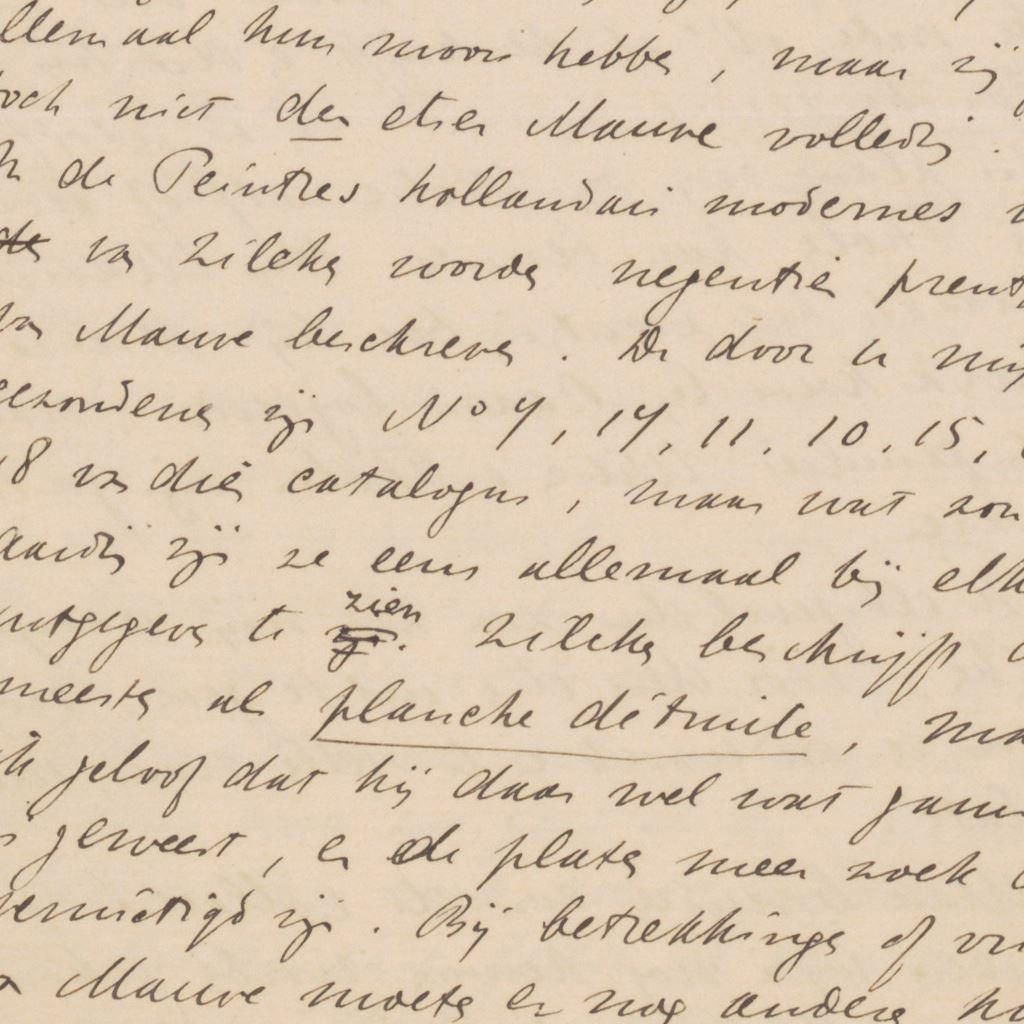 allemaal hun moois hebben, maar zij
toch niet den etser Mauve volledig.
de Peintres hollandais modernes
de van Zilcken worden negentien prent
van Mauve beschreven. De door u mij
gezondene zijn No 7, 14, 11, 10, 15,
18 van dien catalogus, maar wat zou
aardig zijn ze eens allemaal bij elk
uitgegeven te zien zijn. Zilcken beschrijft
meesten als planche détruite, ma
ik geloof dat hij daar wel wat
geweest, en de platen meer zoek
vernietigd zijn. Bij betrekkingen of vri
Mauve moeten er nog andere